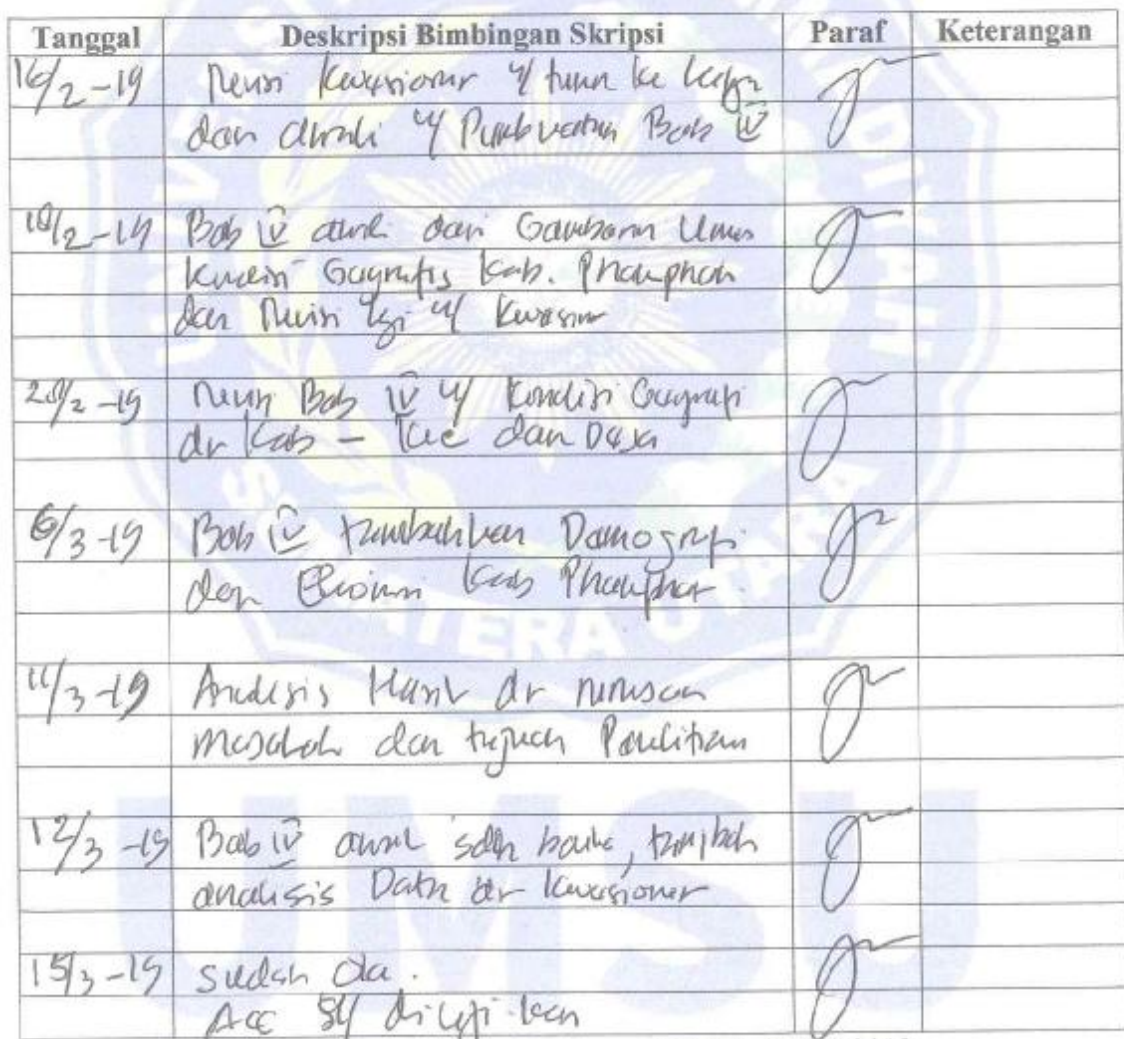 Tanggal Deskripsi Bimbingan Skripsi Paraf Keterangan
16/2-19 Revisi Kuesioner u/ turun ke
dan u/ Pembuatan Bab IV
Bab IV dari Gambaran Umum
Geografis Kab.
dan Revisi lgi u/
Revisi Bab IV u/ Kondisi Geografi
dr Kab - Kec dan Desa
6/3-19 Bab IV tambahkan Demografi
dan Ekonomi Kab
11/3-19 Analisis Hasil dr rumusan
masalah dan tujuan Penelitian
12/3-19 Bab IV awal sdh baik, tambah
analisis Data dr Kuesioner
15/3-19 sudah
Acc diujikan
SUMATERA UTARA
UMSU